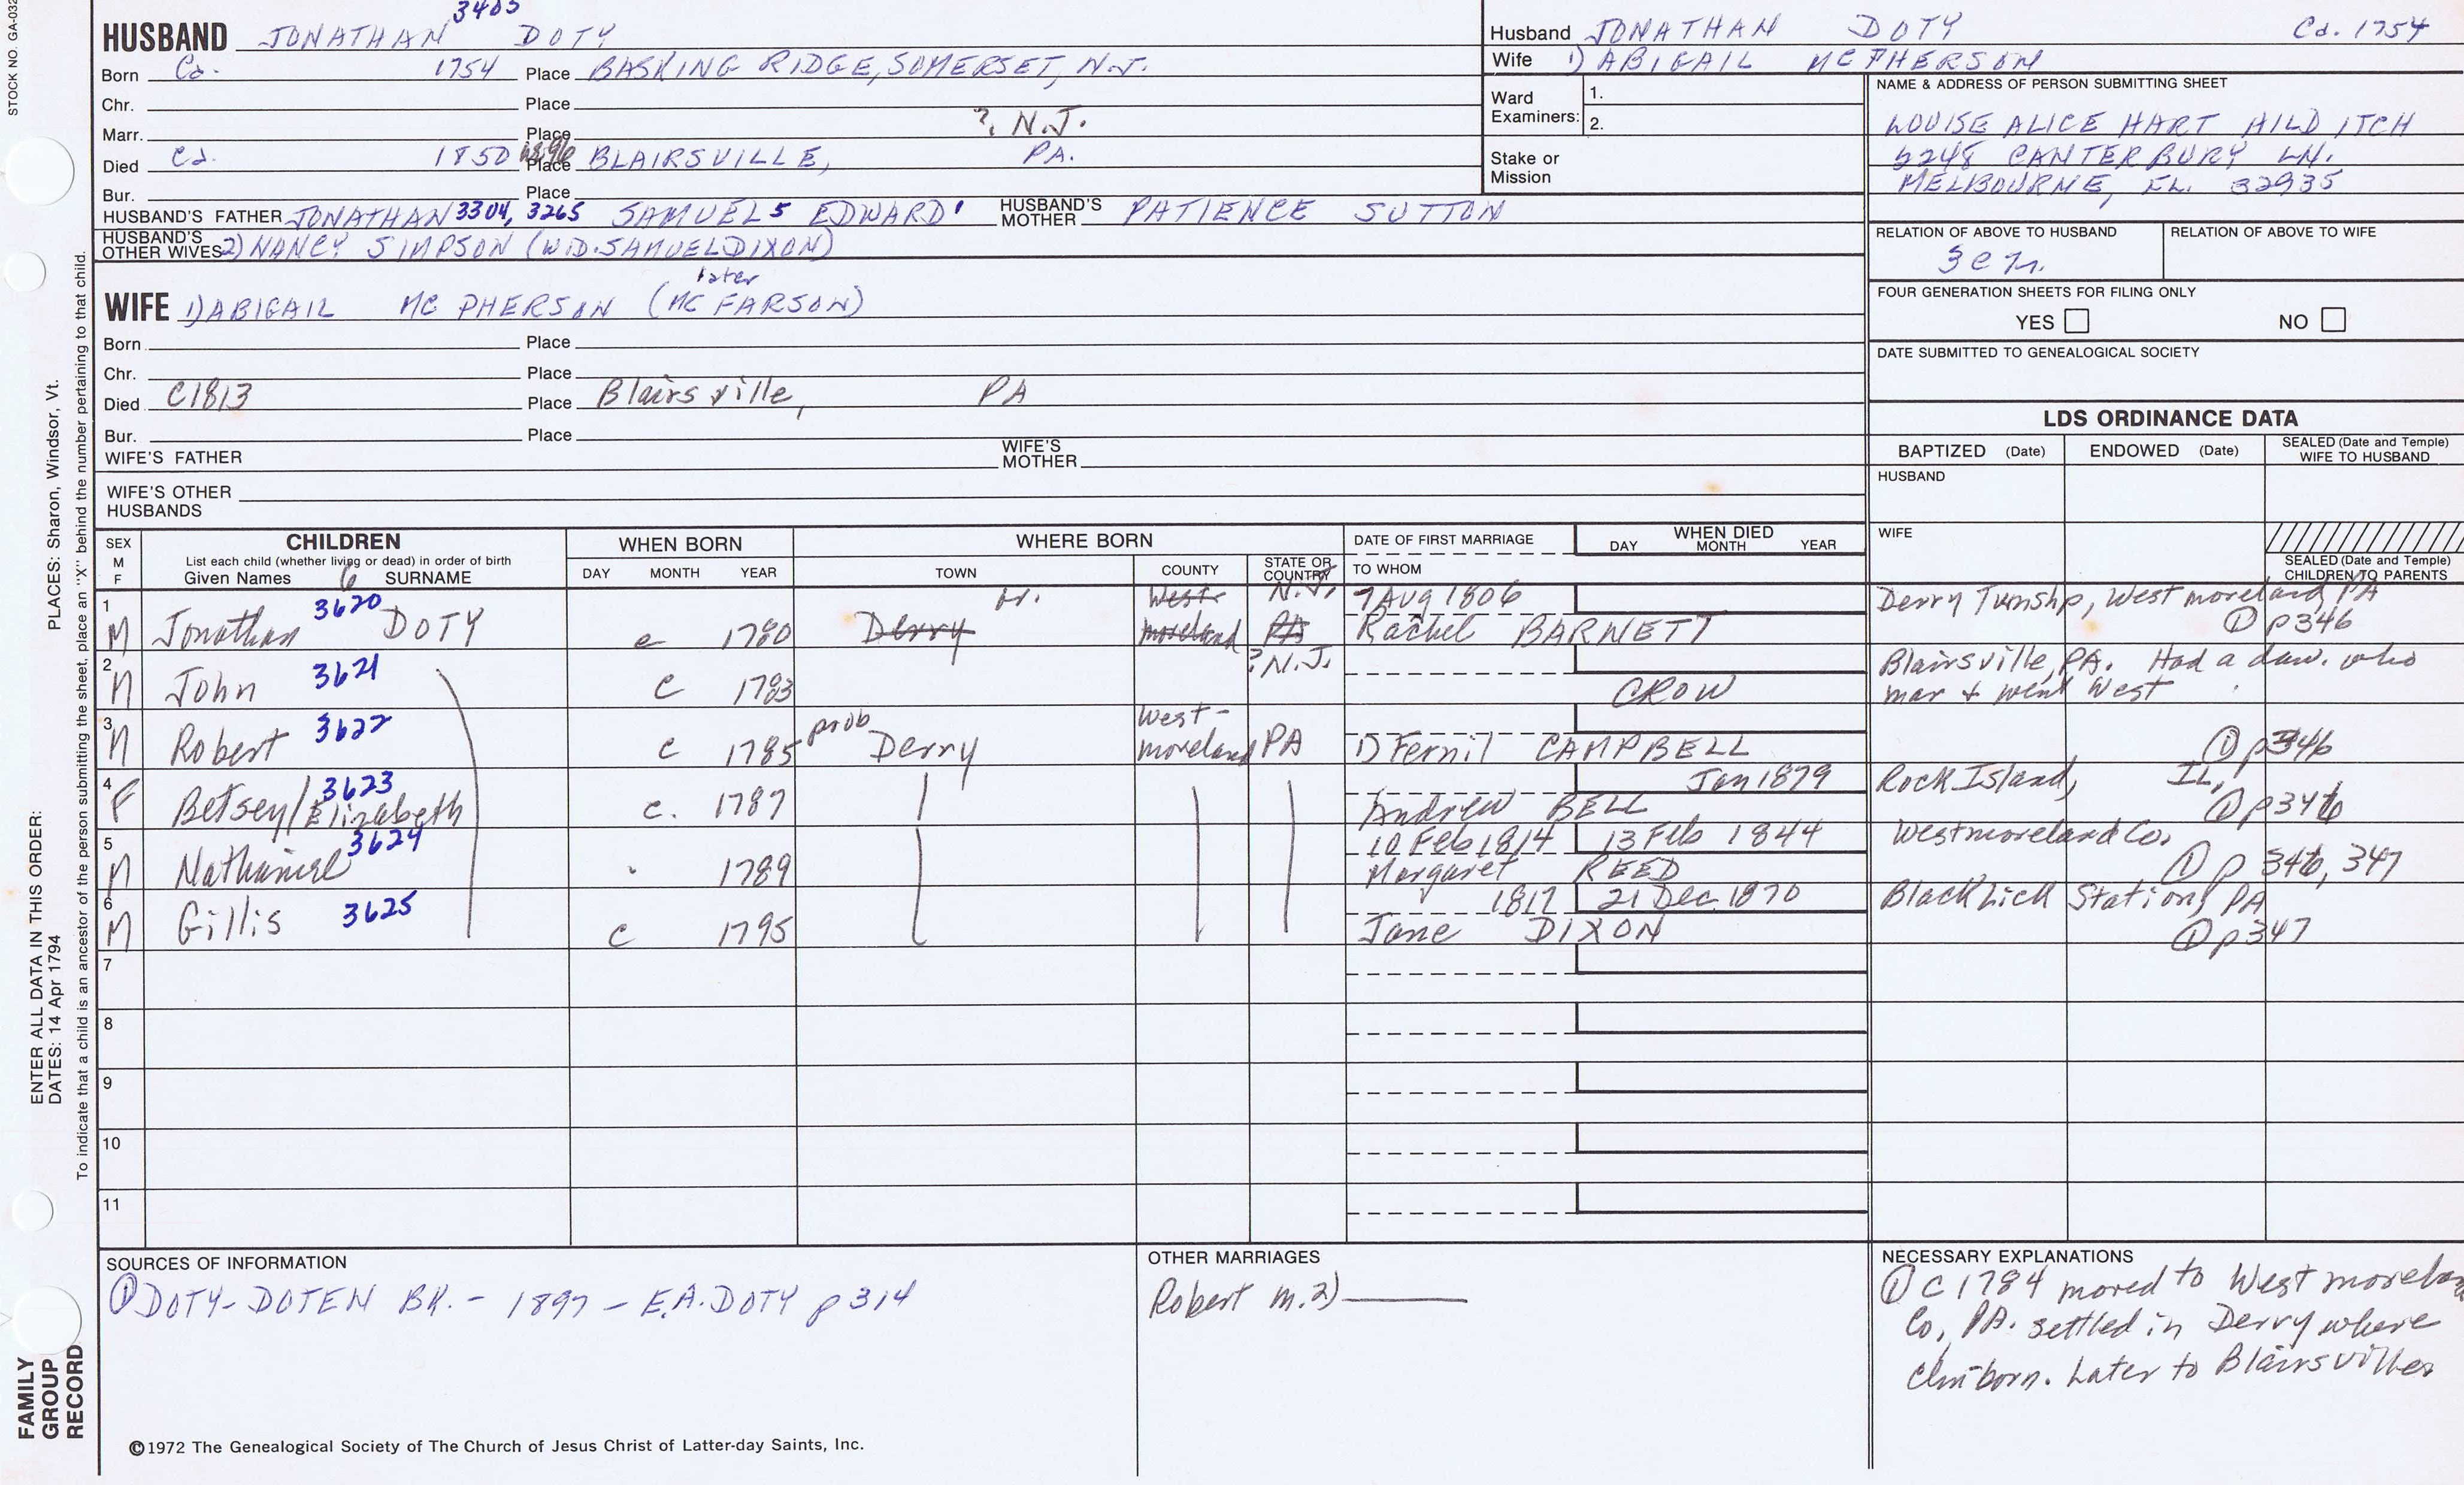 STOCK NO. GA-032
3405
HUSBAND JONATHAN DOTY
Born Ca. 1754 Place BASKING RIDGE, SOMERSET, N.J.
Chr. Place
Marr. Place ?, N.J.
Died Ca. 1850 Place BLAIRSVILLE, PA.
Bur. Place
HUSBAND'S FATHER JONATHAN 3304, 3265 SAMUEL5 EDWARD' HUSBAND'S MOTHER PATIENCE SUTTON
HUSBAND'S OTHER WIVES 2) NANCY SIMPSON (WID. SAMUEL DIXON)
later
WIFE 1) ABIGAIL MC PHERSON (MC FARSON)
Born Place
Chr. Place
Died C1813 Place Blairsville, PA
Bur. Place
WIFE'S FATHER WIFE'S MOTHER
WIFE'S OTHER HUSBANDS
Husband JONATHAN DOTY Ca. 1754
Wife 1) ABIGAIL MCPHERSON
Ward Examiners: 1.
2.
Stake or Mission
NAME & ADDRESS OF PERSON SUBMITTING SHEET
LOUISE ALICE HART HILDITCH
2248 CANTERBURY LN.
MELBOURNE, FL. 32935
RELATION OF ABOVE TO HUSBAND RELATION OF ABOVE TO WIFE
FOUR GENERATION SHEETS FOR FILING ONLY
YES NO
DATE SUBMITTED TO GENEALOGICAL SOCIETY
LDS ORDINANCE DATA
BAPTIZED (Date) ENDOWED (Date) SEALED (Date and Temple) WIFE TO HUSBAND
HUSBAND
WIFE
SEALED (Date and Temple) CHILDREN TO PARENTS
SEX M F CHILDREN WHEN BORN WHERE BORN DATE OF FIRST MARRIAGE WHEN DIED
List each child (whether living or dead) in order of birth
Given Names 6 SURNAME DAY MONTH YEAR TOWN COUNTY STATE OR COUNTRY TO WHOM DAY MONTH YEAR
1 3620 West- N.J. 7 Aug 1806 Derry Twnshp, Westmoreland, PA
M Jonathan DOTY c 1780 Derry moreland PA Rachel BARNETT ① p346
2 3621 ? N.J. Blairsville, PA. Had a daw. who
M John c 1783 CROW mar + went West
3 3622 prob West-
M Robert c 1785 Derry moreland PA 1) Fernil CAMPBELL ① p346
4 3623 Jan 1879 Rock Island, IL,
F Betsey/Elizabeth c. 1787 Andrew BELL ① p346
5 3624 10 Feb 1814 13 Feb 1844 Westmoreland Co.
M Nathaniel 1789 Margaret REED ① p 346, 347
6 3625 1817 21 Dec 1870 Black Lick Station, PA
M Gillis c 1795 Jane DIXON ① p347
7
8
9
10
11
SOURCES OF INFORMATION
① DOTY-DOTEN BK. - 1897 - E.A. DOTY p 314
OTHER MARRIAGES
Robert m. 2)
NECESSARY EXPLANATIONS
① C 1784 moved to Westmoreland
Co, PA. settled in Derry where
born. Later to Blairsville
©1972 The Genealogical Society of The Church of Jesus Christ of Latter-day Saints, Inc.
ENTER ALL DATA IN THIS ORDER: PLACES: Sharon, Windsor, Vt.
DATES: 14 Apr 1794
To indicate that a child is an ancestor of the person submitting the sheet, place an "X" behind the number pertaining to that child.
FAMILY
GROUP
RECORD